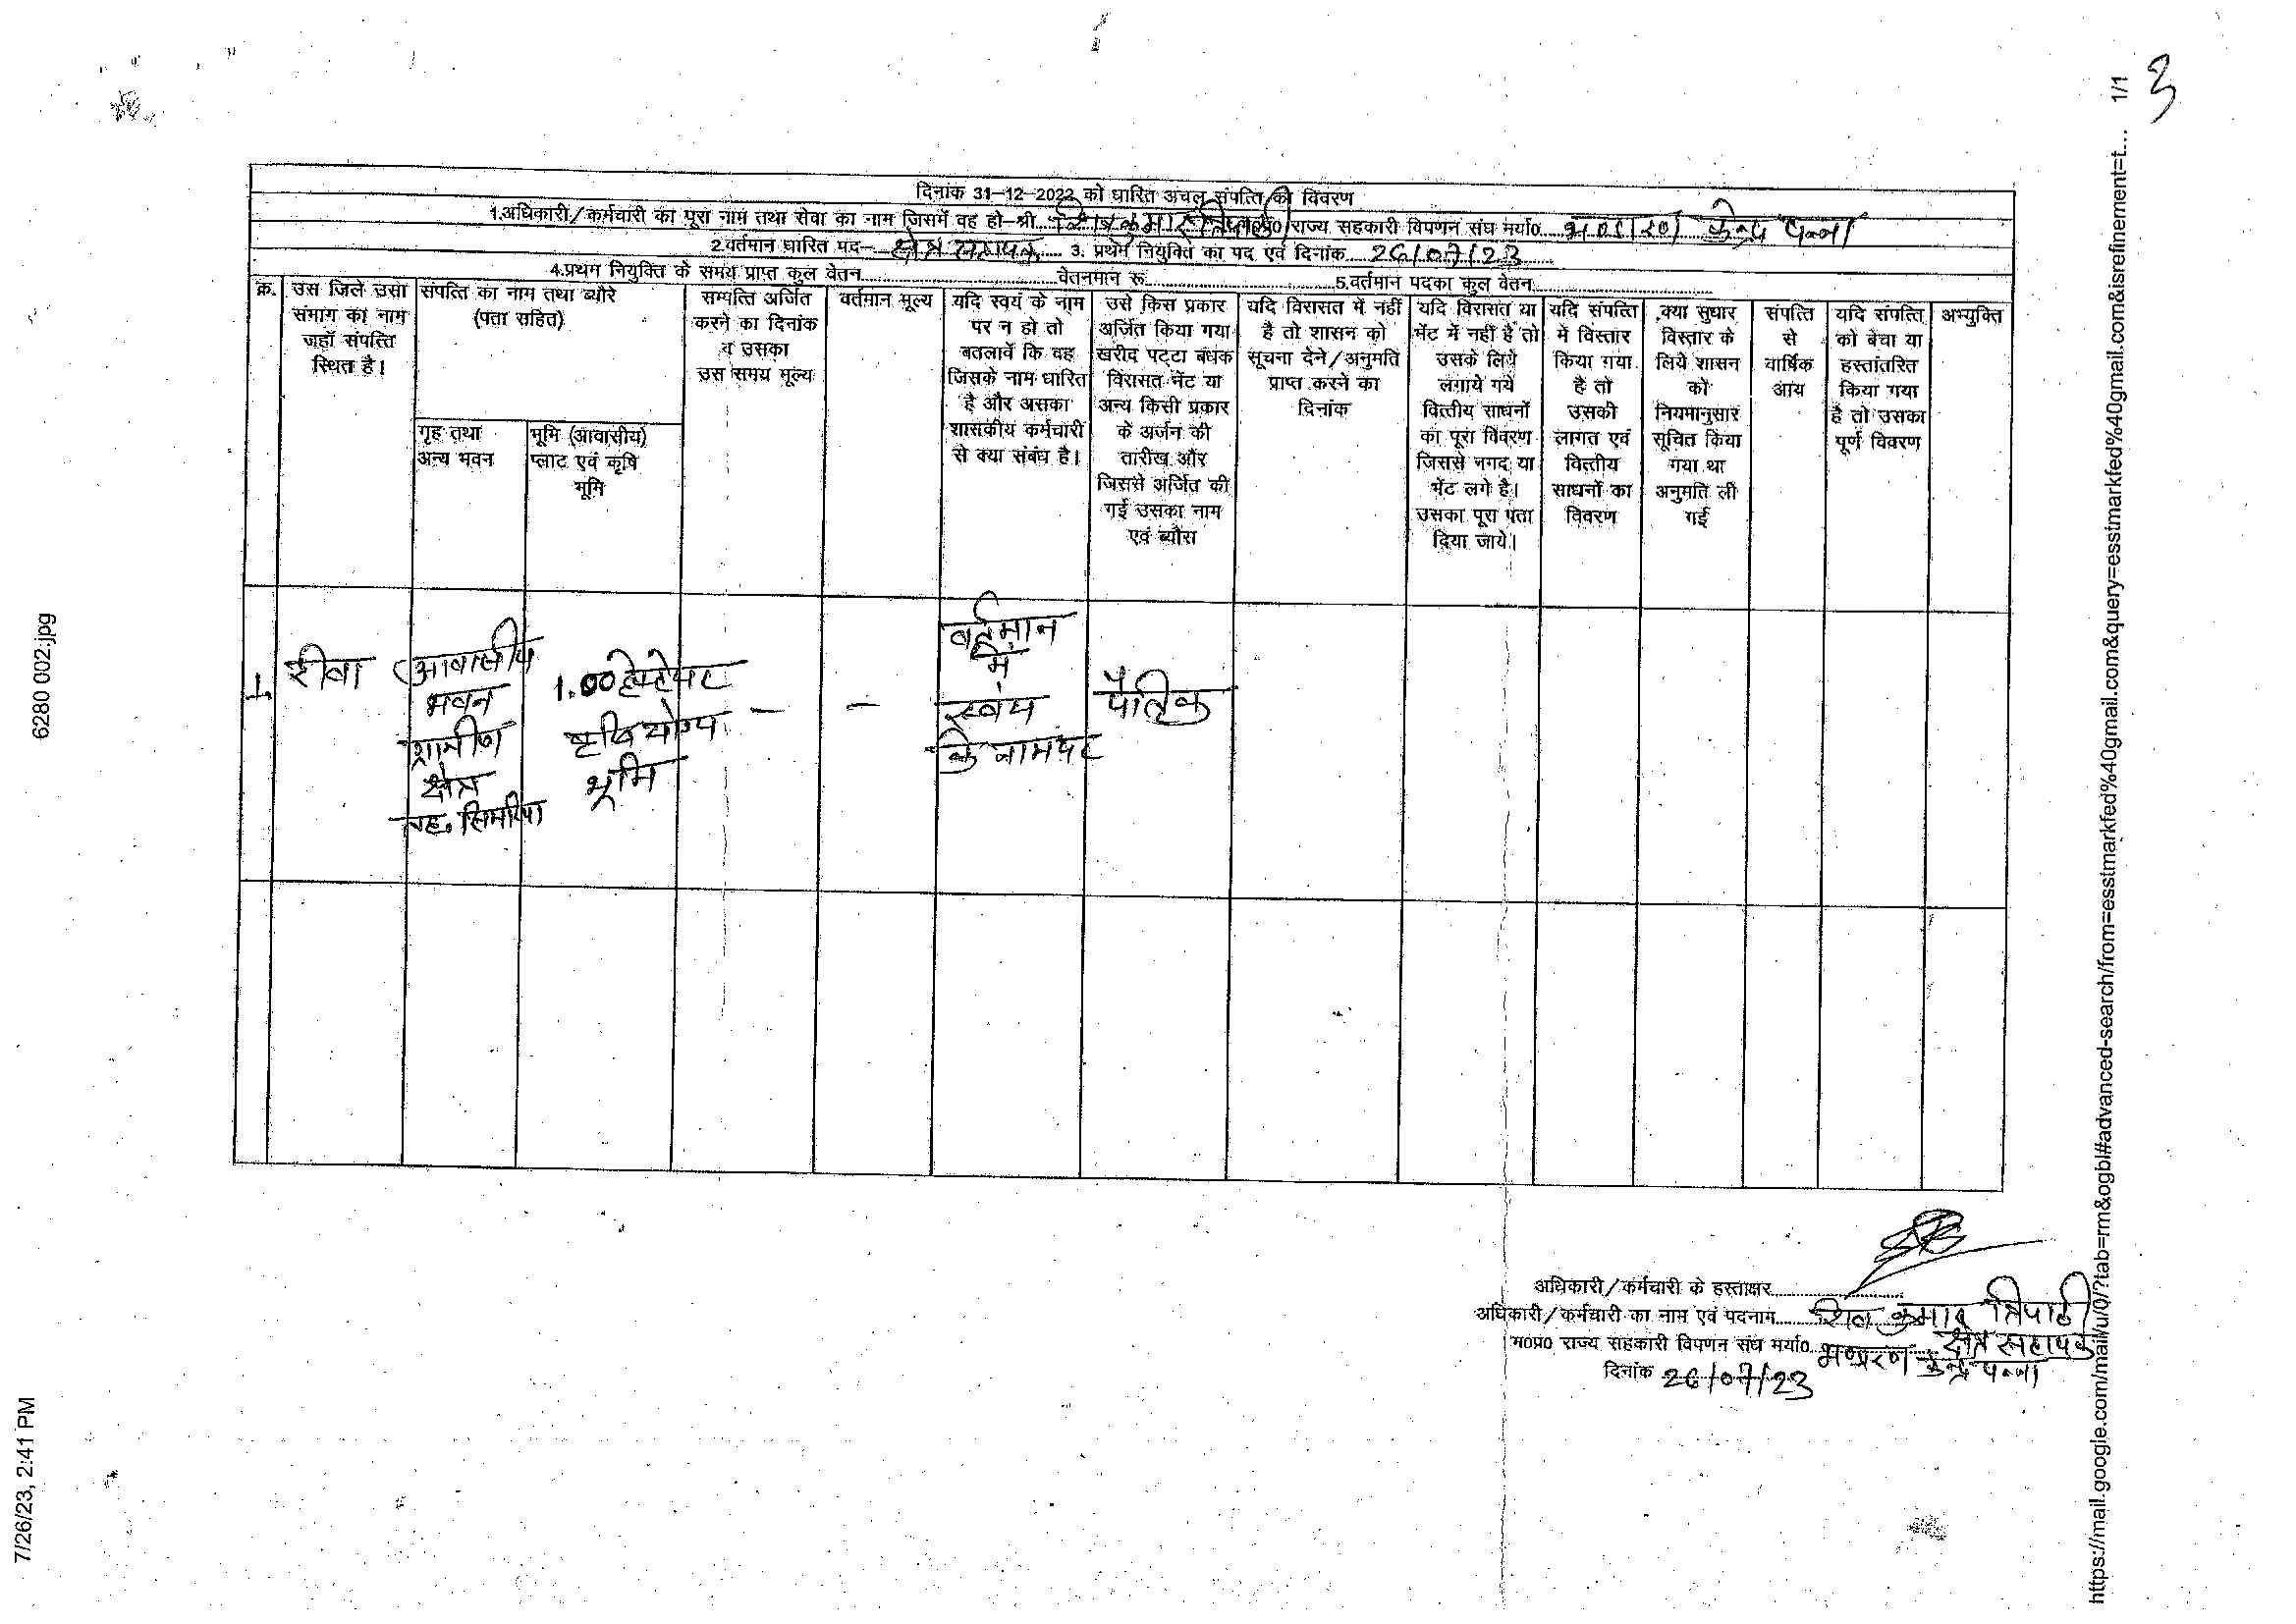 1/1
3
दिनांक 31-12-2022 को धारित अचल संपत्ति की विवरण
1.अधिकारी/कर्मचारी का पूरा नाम तथा सेवा का नाम जिसमें वह हो-श्री शिव कुमार त्रिपाठी म0प्र0 राज्य सहकारी विपणन संघ मर्या0 भण्डारण केन्द्र पन्ना
2.वर्तमान धारित पद- क्षेत्र सहायक 3. प्रथम नियुक्ति का पद एवं दिनांक 26/07/23
4.प्रथम नियुक्ति के समय प्राप्त कुल वेतन वेतनमान रू. 5.वर्तमान पदका कुल वेतन
क्र. उस जिले उसा संभाग का नाम जहाँ संपत्ति स्थित है।
संपत्ति का नाम तथा ब्यौरे (पता सहित)
गृह तथा अन्य भवन
भूमि (आवासीय) प्लाट एवं कृषि भूमि
सम्पत्ति अर्जित करने का दिनांक व उसका उस समय मूल्य
वर्तमान मूल्य
यदि स्वयं के नाम पर न हो तो बतलावें कि वह जिसके नाम धारित है और असका शासकीय कर्मचारी से क्या संबंध है।
उसे किस प्रकार अर्जित किया गया खरीद पट्टा बंधक विरासत भेंट या अन्य किसी प्रकार के अर्जन की तारीख और जिससे अर्जित की गई उसका नाम एवं ब्यौरा
यदि विरासत में नहीं है तो शासन को सूचना देने/अनुमति प्राप्त करने का दिनांक
यदि विरासत या भेंट में नहीं है तो उसके लिये लगाये गये वित्तीय साधनों का पूरा विवरण जिससे नगद या भेंट लगे है। उसका पूरा पता दिया जाये।
यदि संपत्ति में विस्तार किया गया है तो उसकी लागत एवं वित्तीय साधनों का विवरण
क्या सुधार विस्तार के लिये शासन को नियमानुसार सूचित किया गया था अनुमति ली गई
संपत्ति से वार्षिक आय
यदि संपत्ति को बेचा या हस्तांतरित किया गया है तो उसका पूर्ण विवरण
अभ्युक्ति
1. रीवा
आवासीय
भवन
ग्रामीण
क्षेत्र
तह. सिमरिया
1.00 हेक्टेयर
कृषि योग्य
भूमि
-
-
वर्तमान
में
स्वंय
के नाम पर
पैतृक
अधिकारी/कर्मचारी के हस्ताक्षर
अधिकारी/कर्मचारी का नाम एवं पदनाम शिव कुमार त्रिपाठी
क्षेत्र सहायक
म0प्र0 राज्य सहकारी विपणन संघ मर्या0 भण्डारण केन्द्र पन्ना
दिनांक 26/07/23
6280 002.jpg
7/26/23, 2:41 PM
https://mail.google.com/mail/u/0/?tab=rm&ogbl#advanced-search/from=esstmarkfed%40gmail.com&query=esstmarkfed%40gmail.com&isrefinement=t...